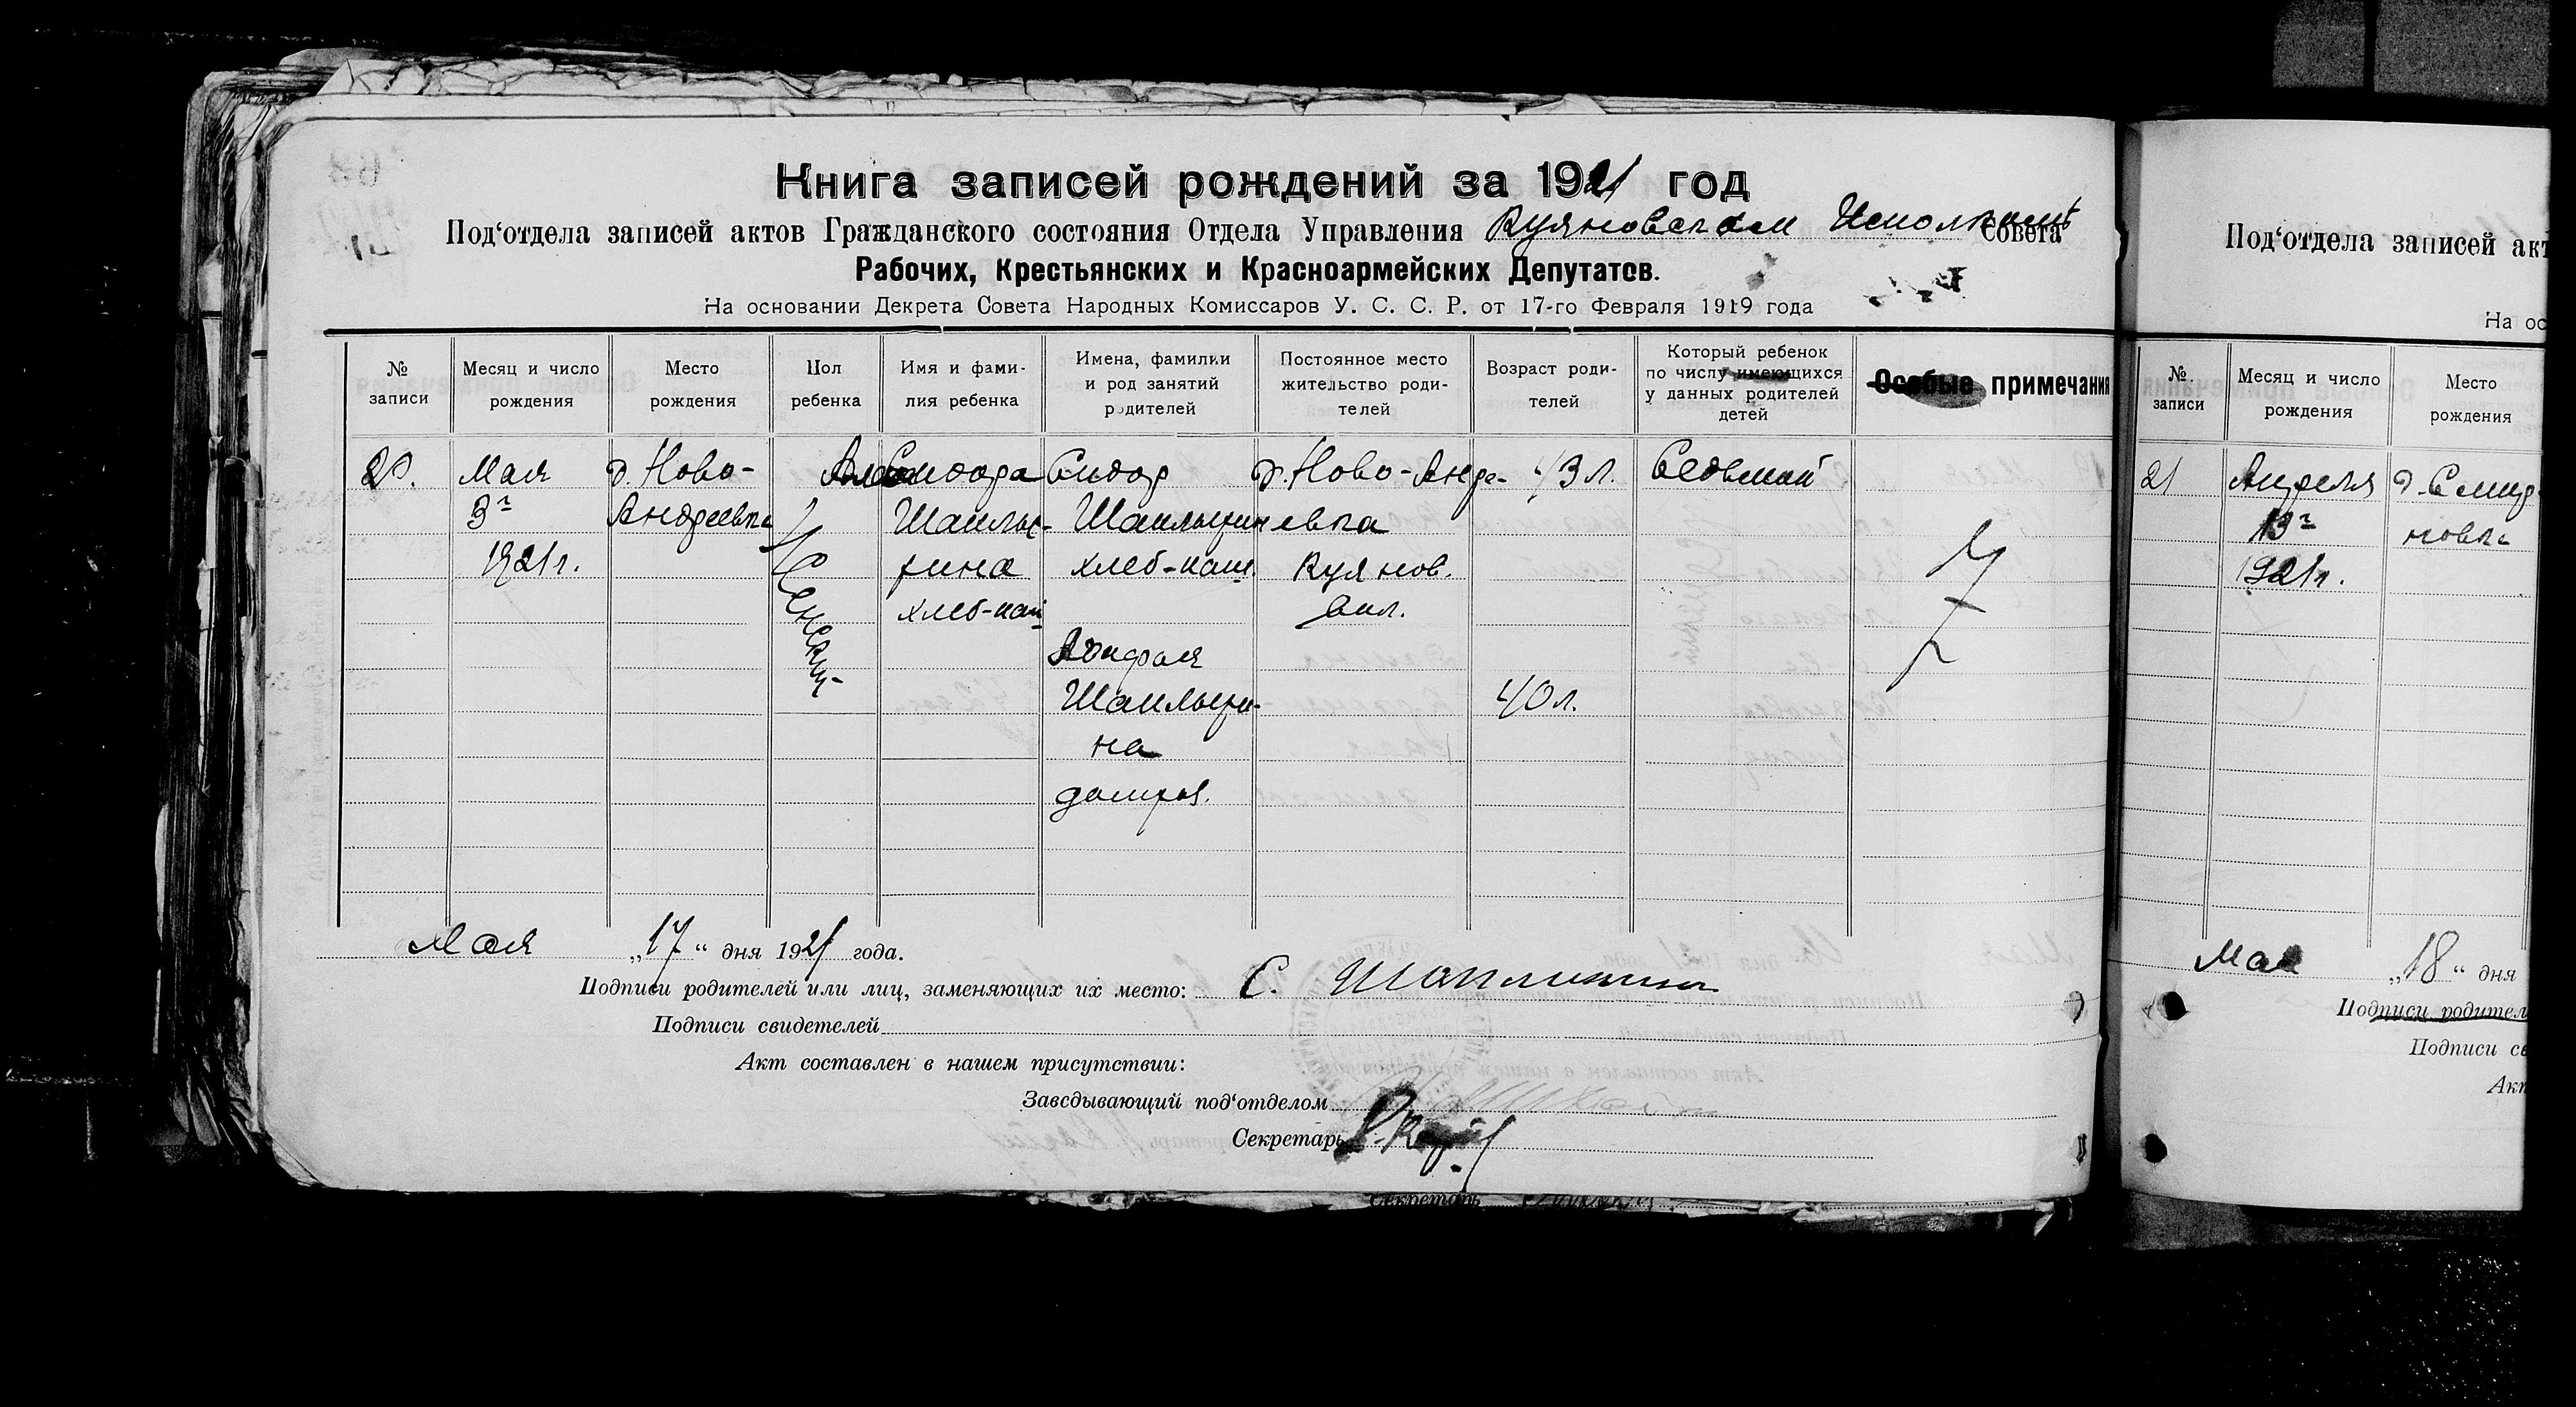 Книга записей рождений за 1921 год
Под‘отдела записей актов Гражданского состояния Отдела Управления Куяновском Исполком Совета
Рабочих, Крестьянских и Красноармейских Депутатов.
На основании Декрета Совета Народных Комиссаров У. С. С. Р. от 17-го Февраля 1919 года
№ записи
Месяц и число рождения
Место рождения
Пол ребенка
Имя и фамилия ребенка
Имена, фамилии и род занятий родителей
Постоянное место жительство родителей
Возраст родителей
Который ребенок по числу имеющихся у данных родителей детей
Особые примечания
20.
Мая
3г
1921г.
д. Ново-
Андреевка
Женский
хлеб-паш
Сидор
хлеб-паш.
на
домхоз.
д. Ново-Андре-
евка
Куянов.
вол.
43 л.
40 л.
Седьмой
Мая „17“ дня 1921 года.
Подписи родителей или лиц, заменяющих их место: С.
Подписи свидетелей
Акт составлен в нашем присутствии:
Заведывающий под‘отделом
Секретарь
Секретарь
Под‘отдела записей акт
На ос
№ записи
Месяц и число рождения
Место рождения
21
Апреля
13г
1921г.
новка
Мая „18“ дня
Подписи родител
Подписи св
Акт